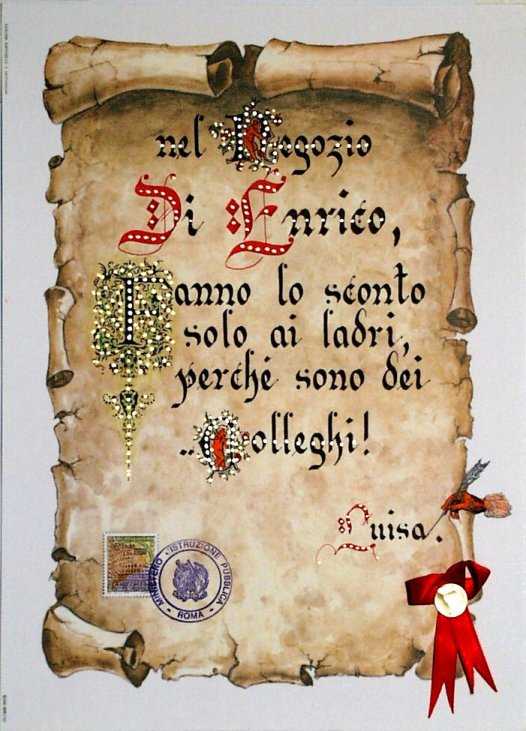 nel Negozio
Di Enrico,
Fanno lo sconto
solo ai ladri,
perché sono dei
..Colleghi!
Luisa.
MINISTERO · ISTRUZIONE PUBBLICA
- ROMA -